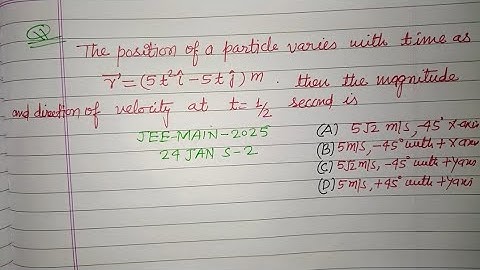 Q The position of a particle varies with time as
r⃗ = (5t²î - 5tĵ) m. then the magnitude
and direction of velocity at t = 1/2 second is
JEE MAIN-2025
24 JAN S-2
(A) 5√2 m/s, -45° X-axis
(B) 5m/s, -45° with + X axis
(C) 5√2 m/s, -45° with + Y axis
(D) 5 m/s, +45° with + Y axis